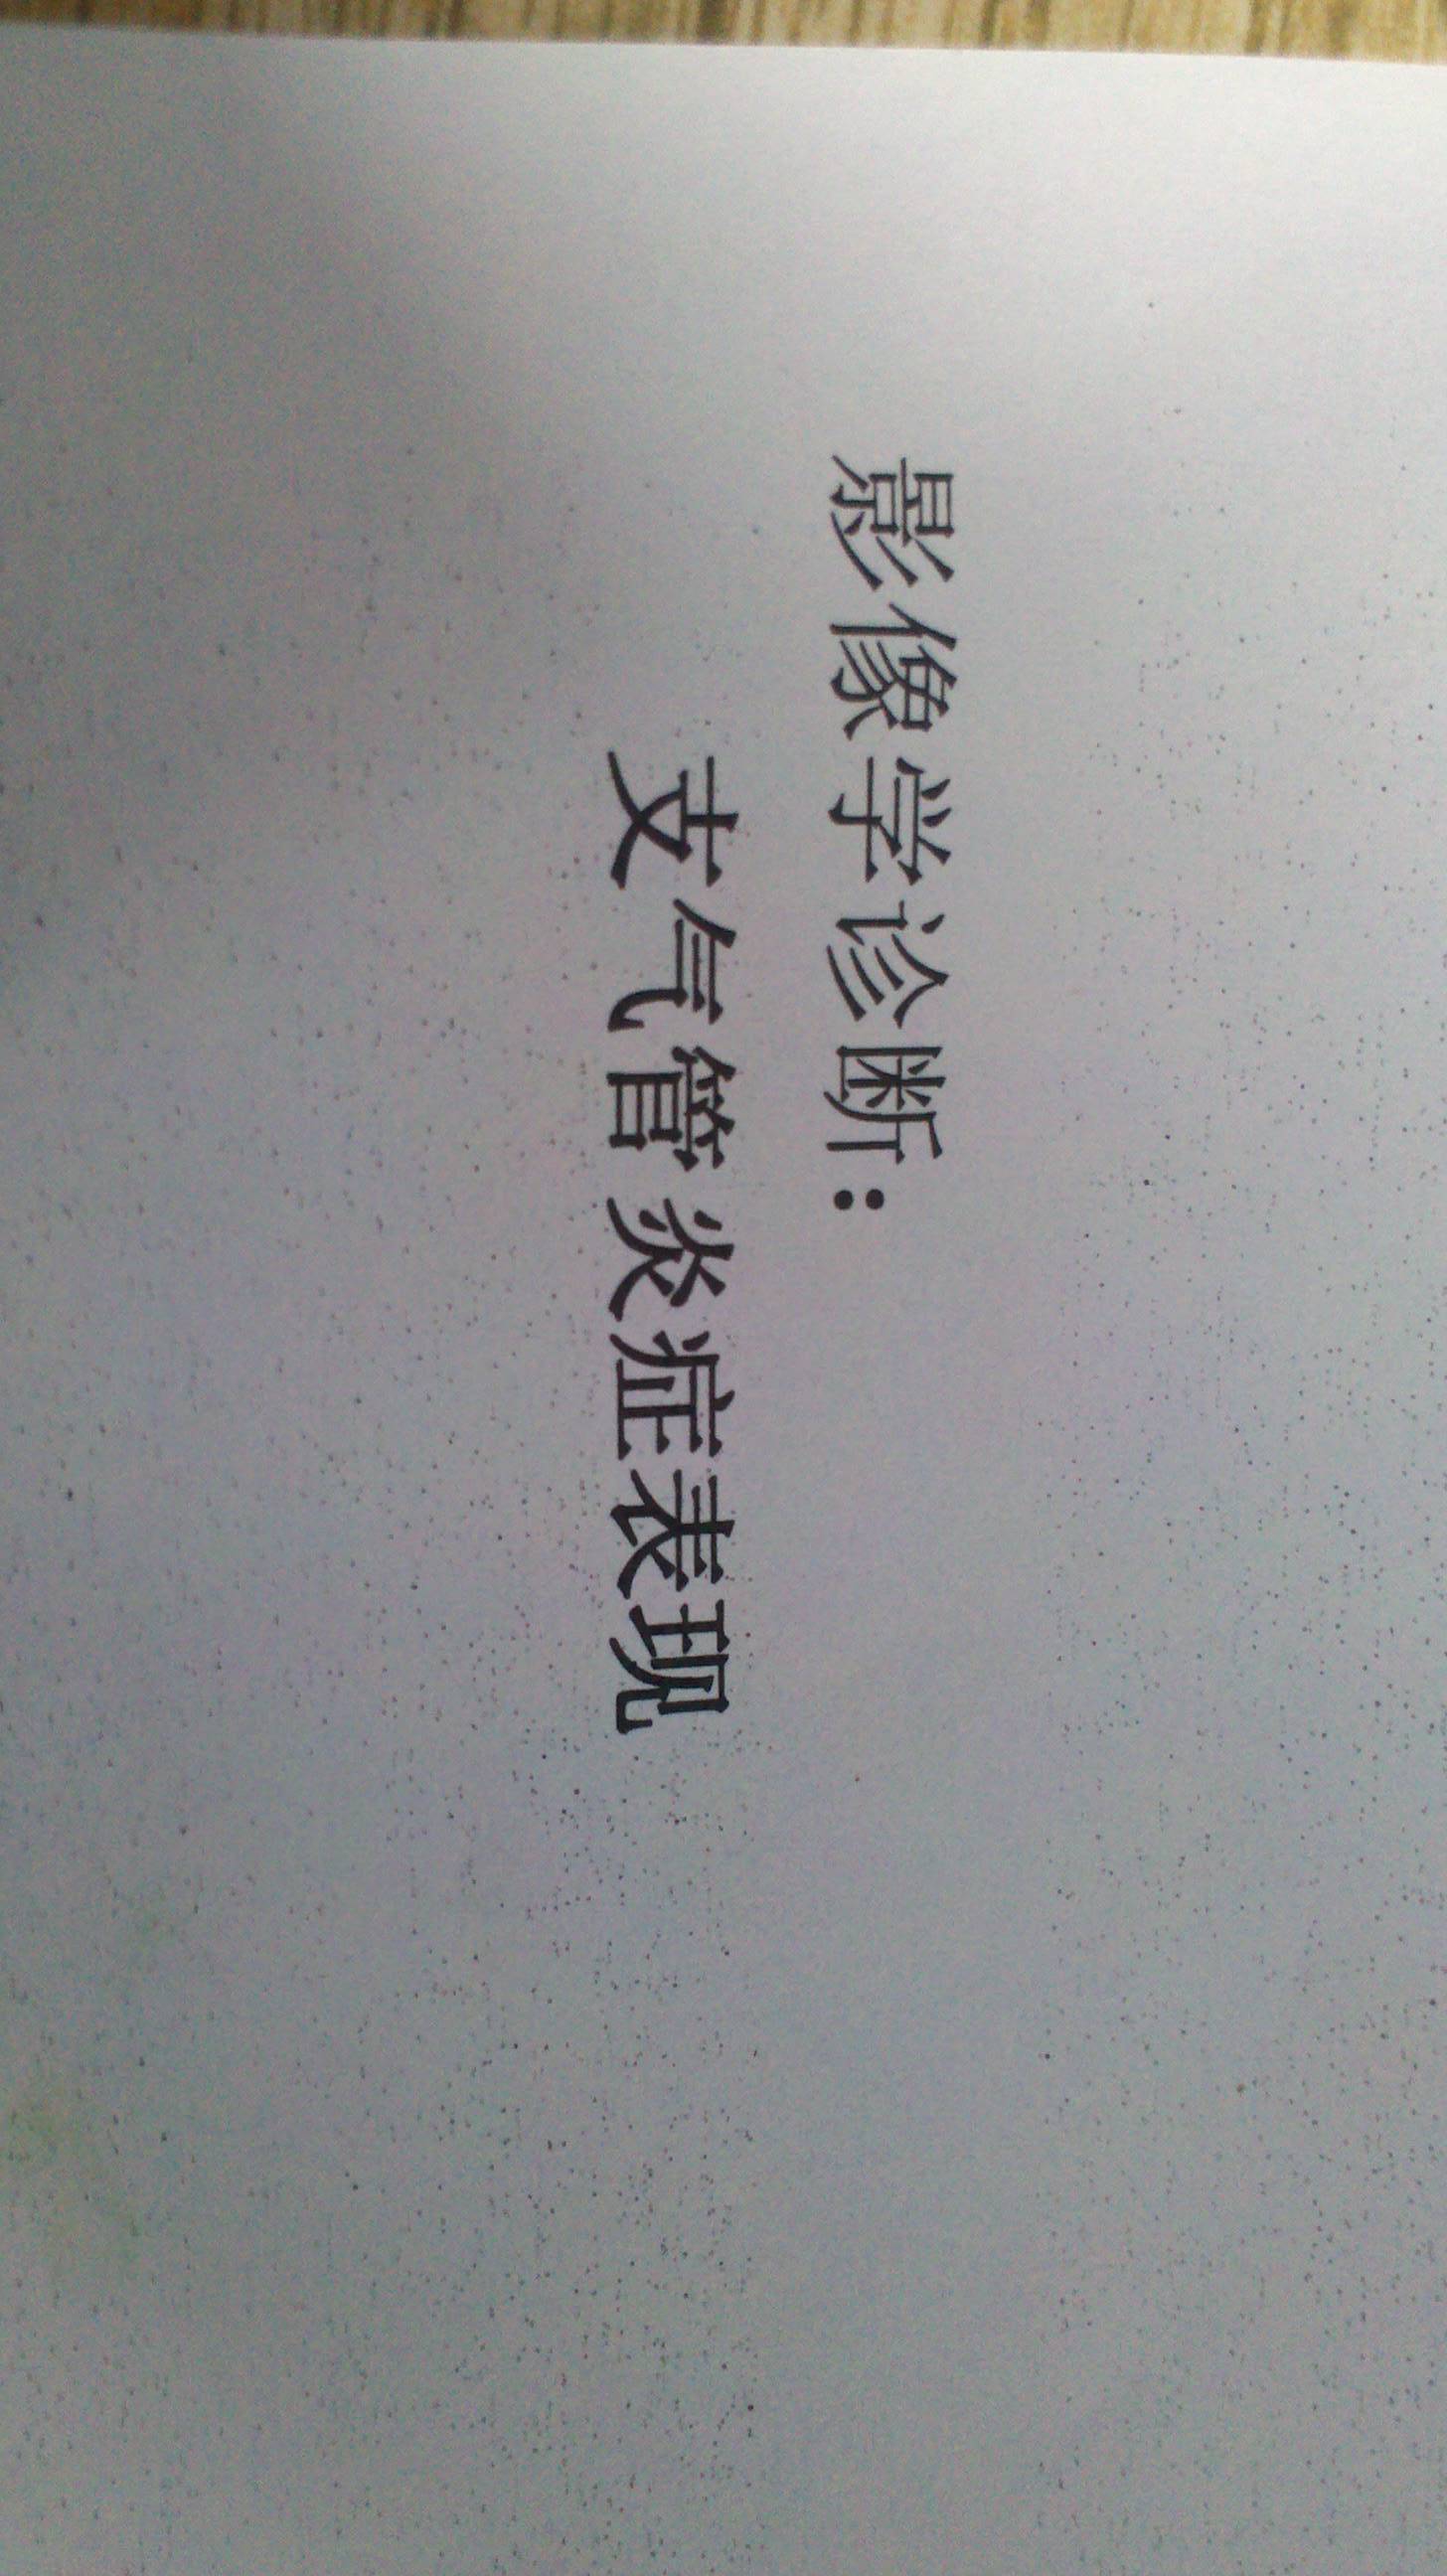 影像学诊断：
支气管炎症表现